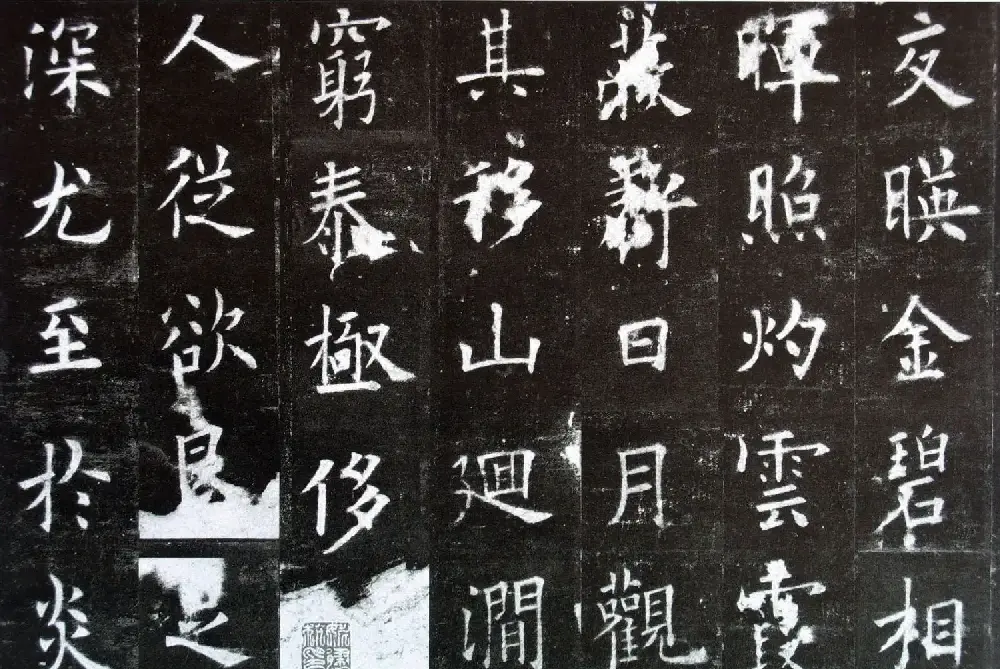 交暎金碧相
暉照灼雲霞
蔽虧日月觀
其移山廻澗
窮泰極侈
人從欲良足
深尤至於炎